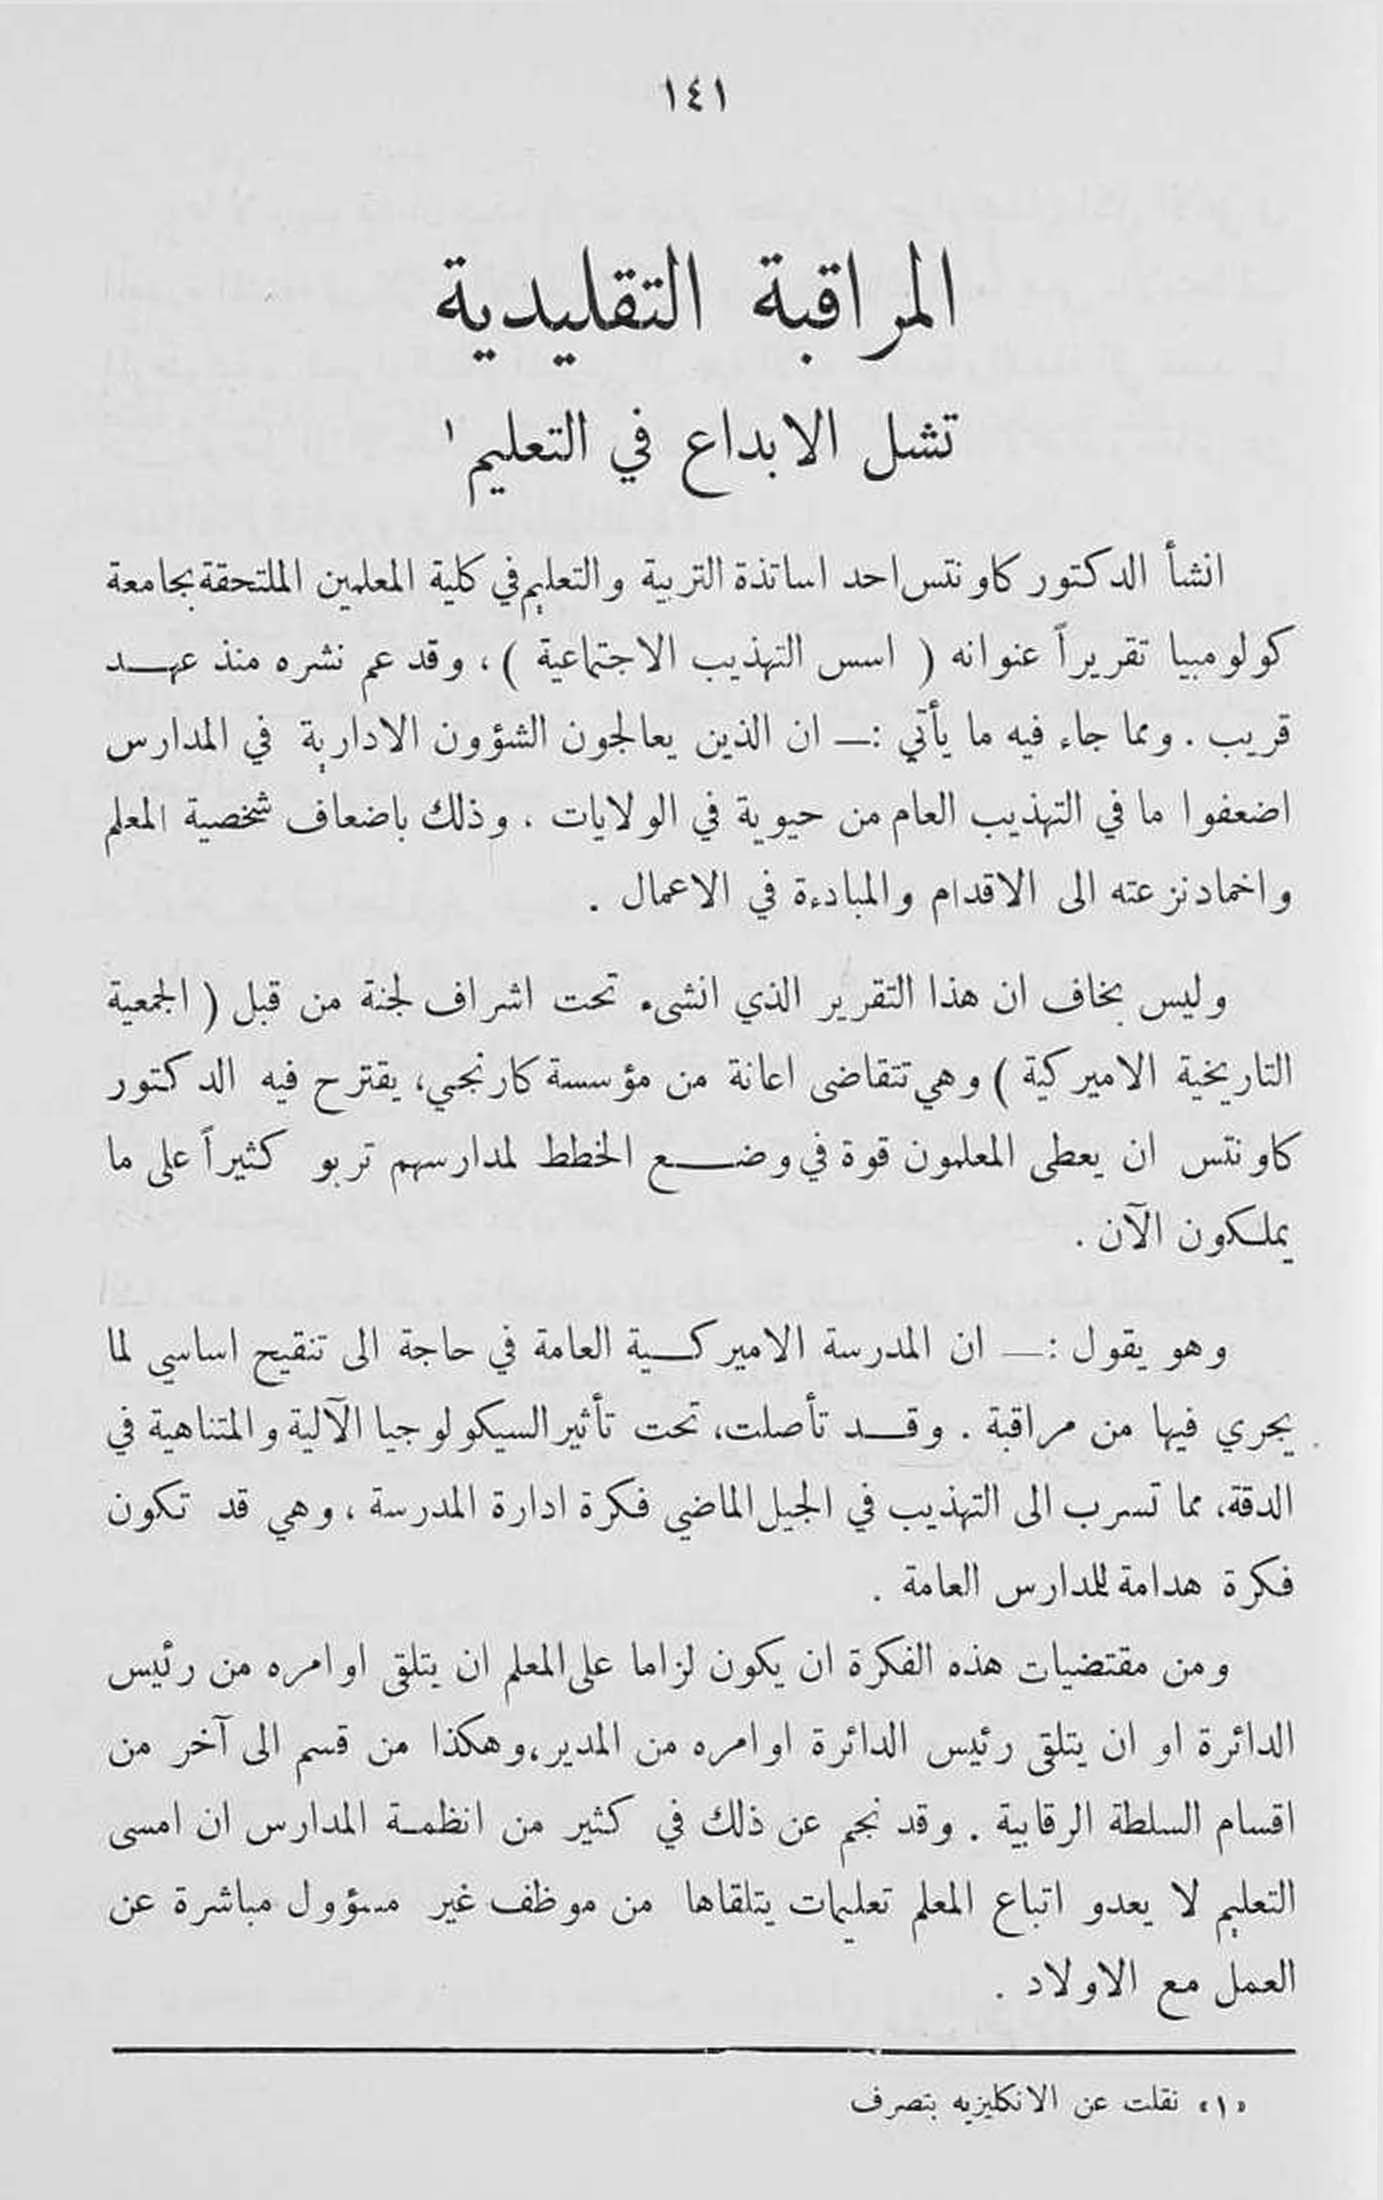 ١٤١
المراقبة التقليدية
تشل الابداع في التعليم ١
انشأ الدكتور كاونتس احد اساتذة التربية والتعليم في كلية المعلمين الملتحقة بجامعة
كولومبيا تقريراً عنوانه ( اسس التهذيب الاجتماعية ) ، وقد عم نشره منذ عهـــد
قريب . ومما جاء فيه ما يأتي :ــ ان الذين يعالجون الشؤون الادارية في المدارس
اضعفوا ما في التهذيب العام من حيوية في الولايات . وذلك باضعاف شخصية المعلم
واخماد نزعته الى الاقدام والمبادءة في الاعمال .
وليس بخاف ان هذا التقرير الذي انشىء تحت اشراف لجنة من قبل ( الجمعية
التاريخية الاميركية ) وهي تتقاضى اعانة من مؤسسة كارنجي، يقترح فيه الدكتور
كاونتس ان يعطى المعلمون قوة في وضـــع الخطط لمدارسهم تربو كثيراً على ما
يملكون الآن .
وهو يقول :ــ ان المدرسة الاميركـــية العامة في حاجة الى تنقيح اساسي لما
يجري فيها من مراقبة . وقـــد تأصلت، تحت تأثير السيكولوجيا الآلية والمتناهية في
الدقة، مما تسرب الى التهذيب في الجيل الماضي فكرة ادارة المدرسة ، وهي قد تكون
فكرة هدامة للمدارس العامة .
ومن مقتضيات هذه الفكرة ان يكون لزاما على المعلم ان يتلقى اوامره من رئيس
الدائرة او ان يتلقى رئيس الدائرة اوامره من المدير، وهكذا من قسم الى آخر من
اقسام السلطة الرقابية . وقد نجم عن ذلك في كثير من انظمـة المدارس ان امسى
التعليم لا يعدو اتباع المعلم تعليمات يتلقاها من موظف غير مسؤول مباشرة عن
العمل مع الاولاد .
«١» نقلت عن الانكليزيه بتصرف